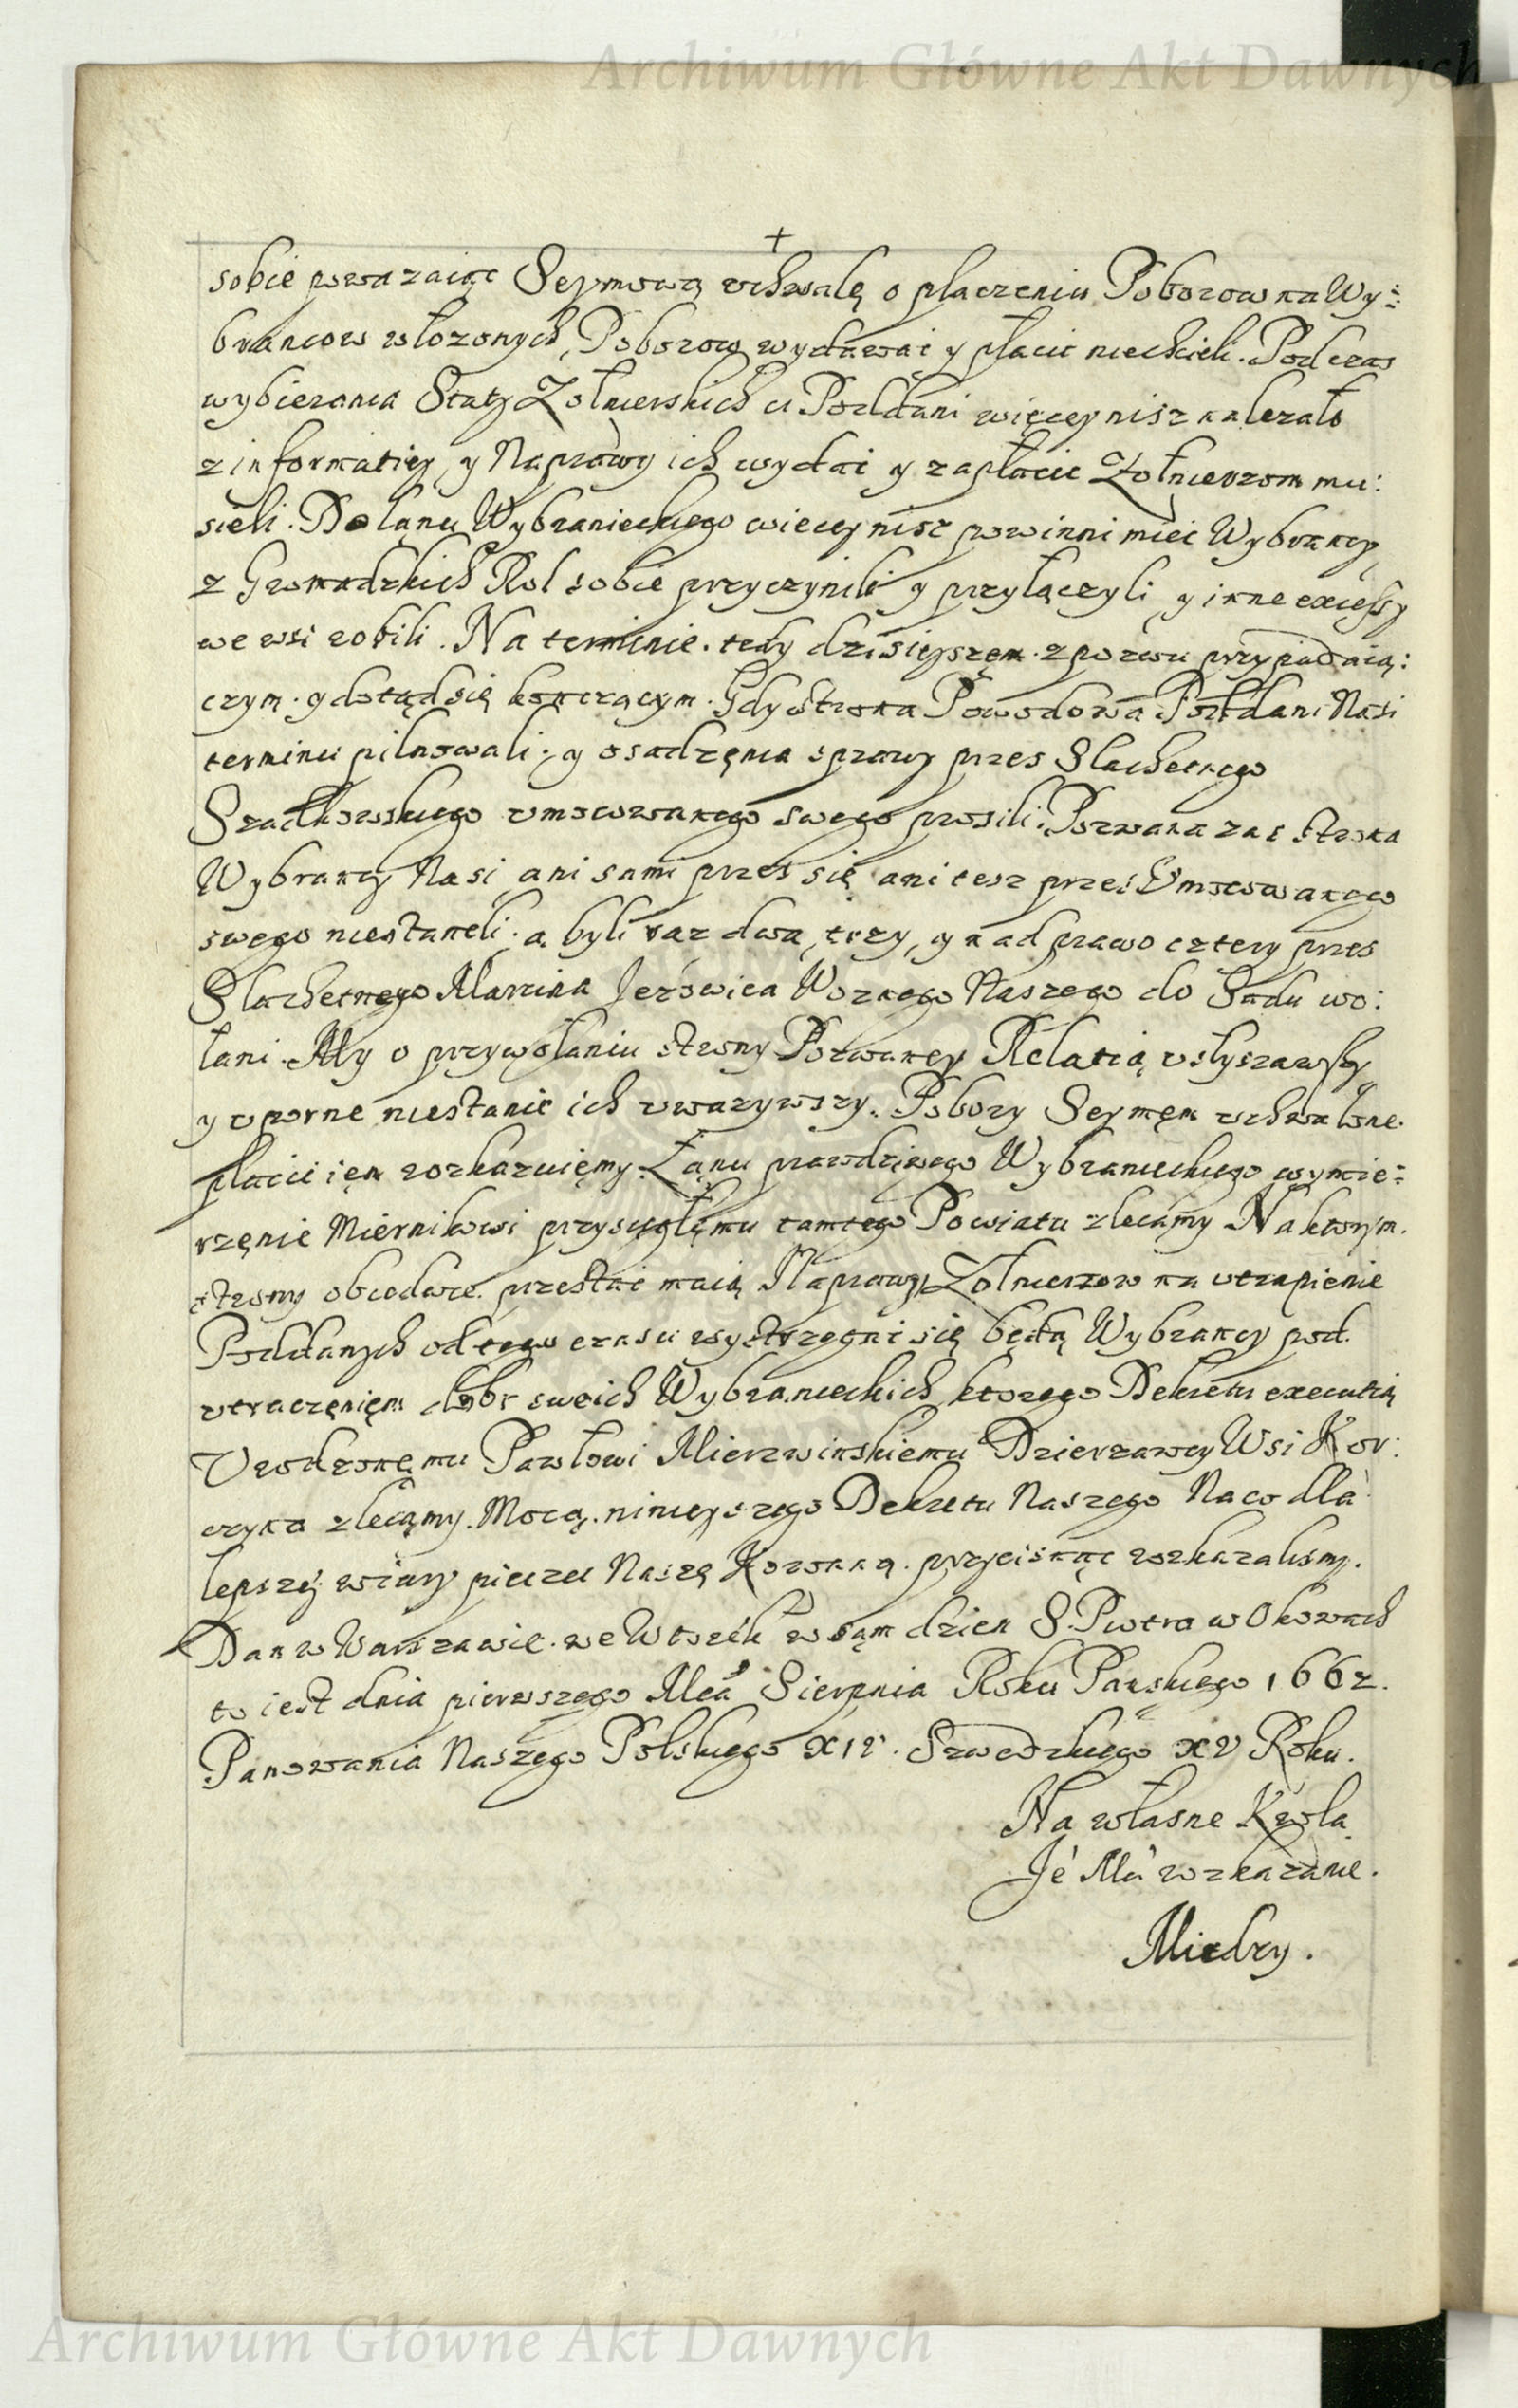 Archiwum Główne Akt Dawnych
+
sobie powazaiąc Seymową vchwalę o płaczeniu Poborow na Wy:
brancow włozonych, Poborow wydawać y płacic niechcieli. Podczas
wybierania Staty Zołnierskich ci Poddani więcey nisz nalezało
z informatiey y Naprawy ich wydać y zapłacic Zołnierzom mu:
sieli. Do Łanu Wybranieckiego wiecey nisz powinni mieć Wybrancy
z Gromadzkich Rol sobie przyczynili y przyłączyli y inne excessy
we wsi robili. Na terminie. tedy dzisieyszęm. z pozwu przypadaią:
czym. y dotąd się konczącym. Gdy Strona Powodowa Poddani Nasi
terminu pilnowali, y osadzęnia sprawy przes Slachetnego
Szadkowskiego vmocowanego swego prosili. Pozwana zas Strona
Wybrancy Nasi ani sami przes się ani tesz przes Vmocowanego
swego niestaneli. a byli raz dwa, trzy, y nad prawo cztery przes
Slachetnego Marcina Jezowica Woznego Naszego do Sadu wo:
łani. My o przywołaniu strony Pozwaney Relatią vsłyszawszy
y vporne niestanie ich vwazywszy. Pobory Seymęm vchwalone.
płacic ięm rozkazuięmy. Łąnu prawdziwego Wybranieckiego wymie:
rzęnie Miernikowi przysięgłęmu tamtego Powiatu zlecamy Na ktorym.
strony obiedwie. przestać maią Naprawy Zołnierzow na vtrapienie
Poddanych od tego czasu wystrzegać się będą Wybrancy pod.
vtraczęnięm dobr swoich Wybranieckich ktorego Dekretu executią
Vrodzonęmu Pawłowi Mierzwinskiemu Dzierzawcy Wsi Kor:
czyna zlecamy. Mocą. ninieyszego Dekretu Naszego Na co dla
lepszey wiary pieczęć Naszą Koronną. przycisnąc rozkazalismy.
Dan w Warszawie. we Wtorek w sąm dzien S. Piotra w Okowach
to iest dnia pierwszego Mcā Sierpnia Roku Panskiego 1662.
Panowania Naszego Polskiego XIV. Szwedzkiego XV Roku.
Na własne Krola
Je Mci rozkazanie.
Miedzy.
Archiwum Główne Akt Dawnych